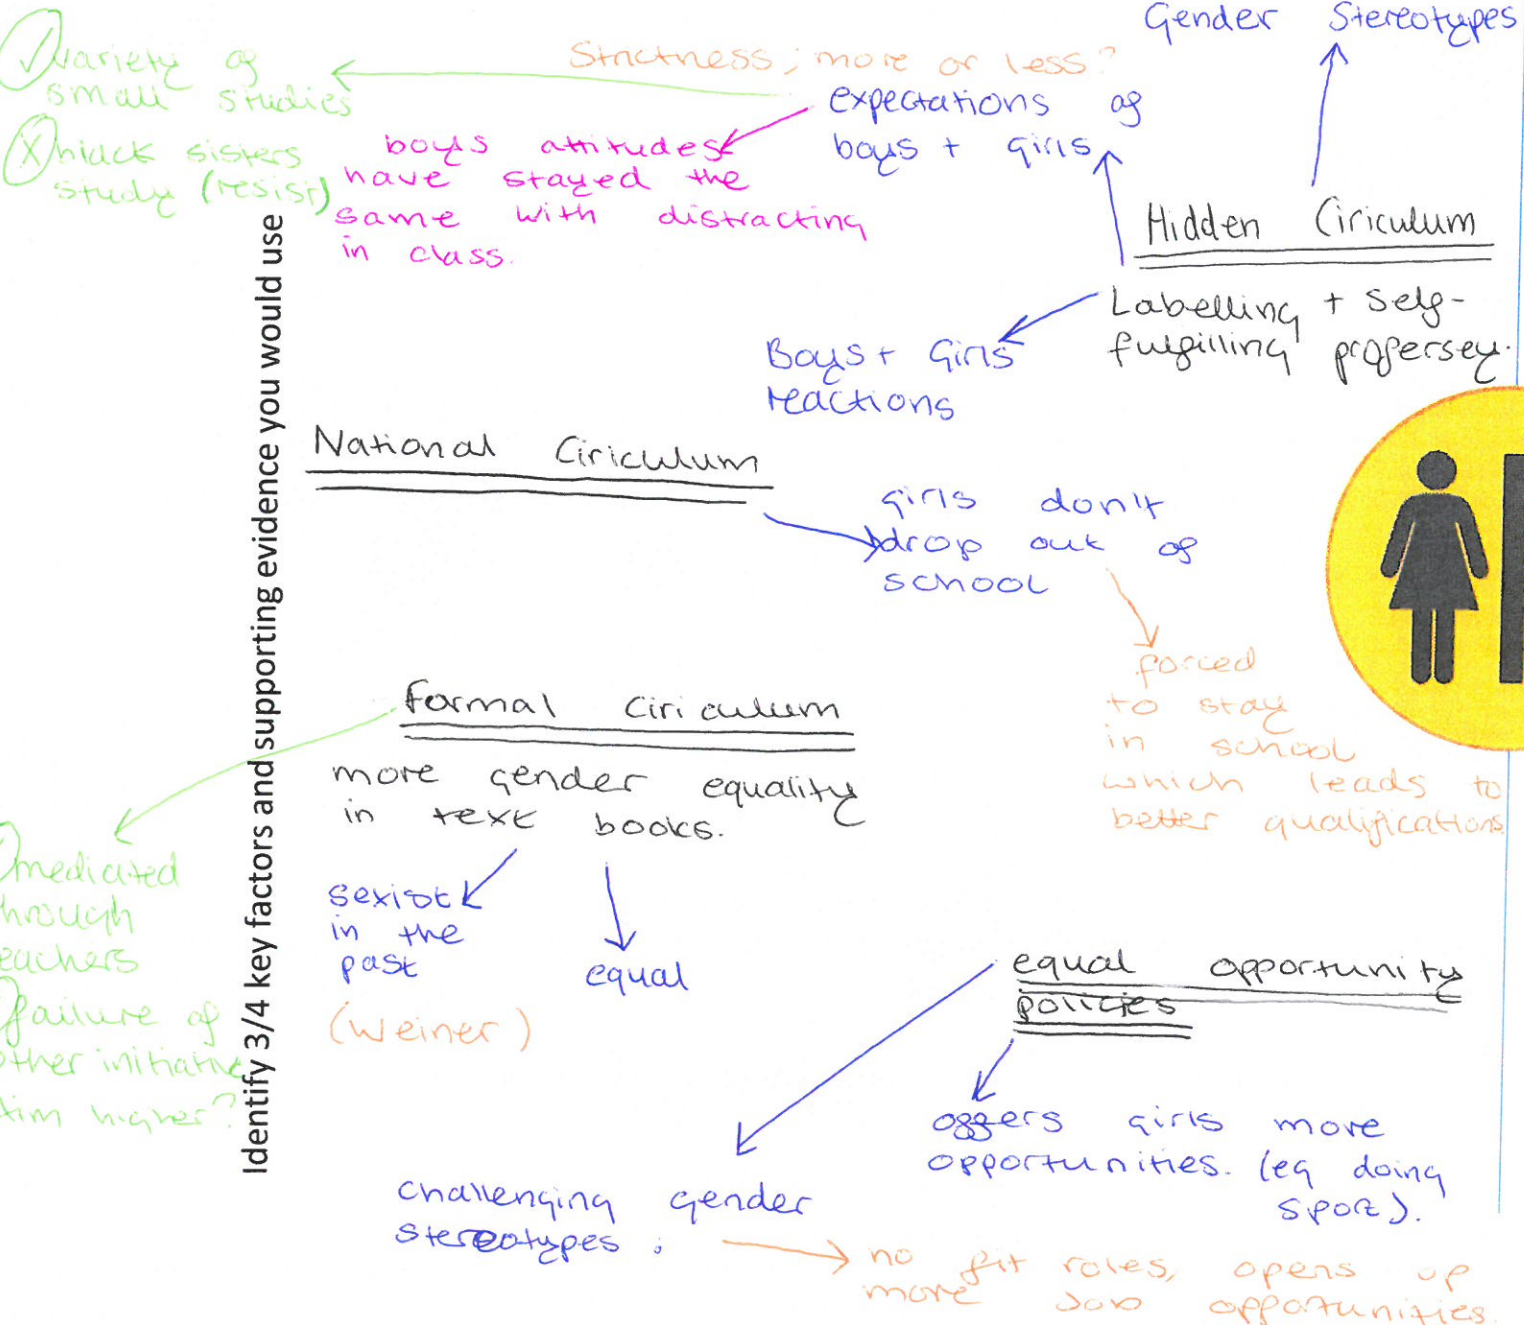 Gender Stereotypes
Strictness; more or less?
expectations of
boys + girls
variety of
small studies
black sisters
study (resist)
boys attitudes
have stayed the
same with distracting
in class.
Hidden Ciriculum
Labelling + self-
fulfilling profersey.
Boys + Girls
reactions
Identify 3/4 key factors and supporting evidence you would use
National Ciriculum
girls don't
drop out of
school
forced
to stay
in school
which leads to
better qualifications
Formal Ciriculum
more gender equality
in text books.
sexist
in the
past
equal
(Weiner)
mediated
through
teachers
failure of
other initiative
Aim higher?
equal opportunity
policies
offers girls more
opportunities. (eg doing
sport).
challenging gender
stereotypes;
no fit roles, opens up
more job opportunities.